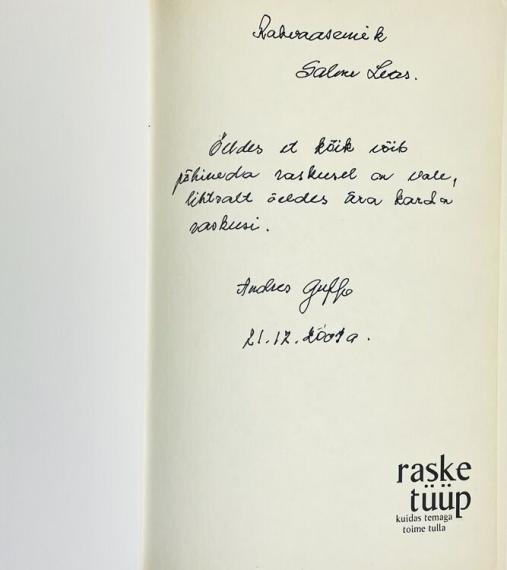 Rahvaasemik
Salme Lees.
Öeldes et kõik võib
põhineda raskusel on vale,
lihtsalt öeldes ära karda
raskusi.
Andres
21.12.
raske
tüüp
kuidas temaga
toime tulla